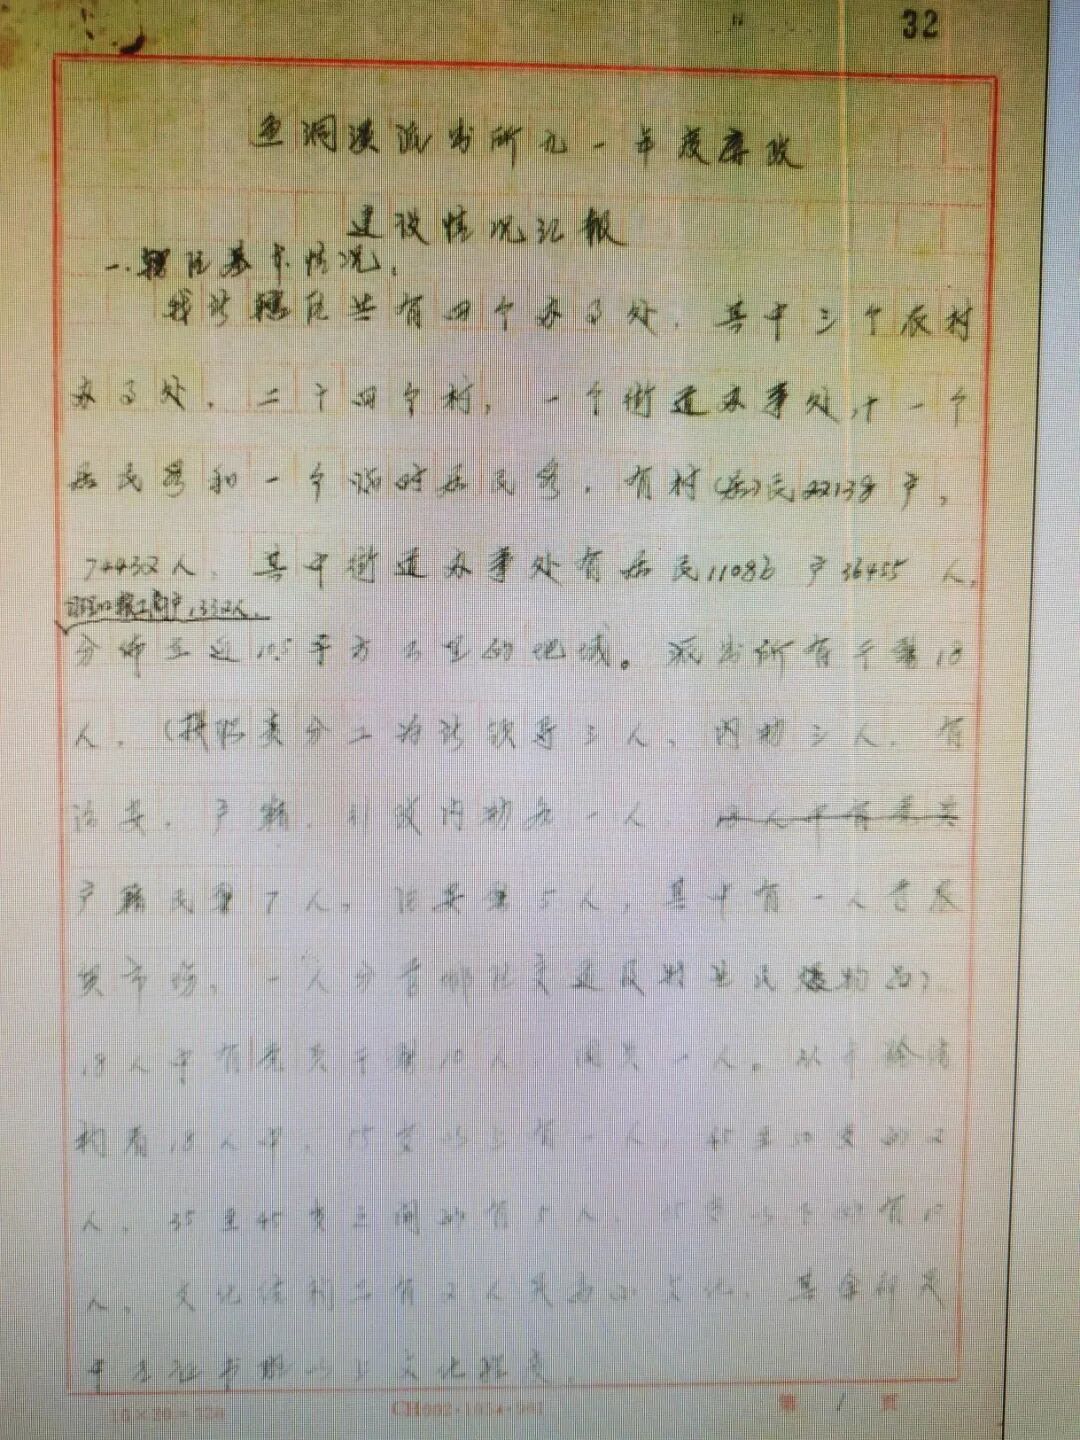 32
鱼洞溪派出所九一年度廉政
建设情况汇报
一、辖区基本情况。
我所辖区共有四个办事处,其中三个农村
办事处,二十四个村,一个街道办事处,十一个
居民委和一个临时居民委,有村(居)民22138户,
74432人,其中街道办事处有居民11086户36455人,
1332人,
分布在近10.5平方公里的地域。派出所有干警18
人,(按职责分工为所领导三人,内勤三人,有
治安,户籍,内勤各一人,
户籍民警7人,治安警5人,其中有一人管农
贸市场,一人分管辖区交通及
18人中有党员干警10人 团员一人。从年龄结
构看18人中,55岁以上有一人,45至50岁的2
人,35至45岁之间的有5人,35岁以下的有10
人,文化结构上有2人是高小文化,其余都是
中专证书班以上文化程度。
16×20=320
CH002·1034·901
第 1 页